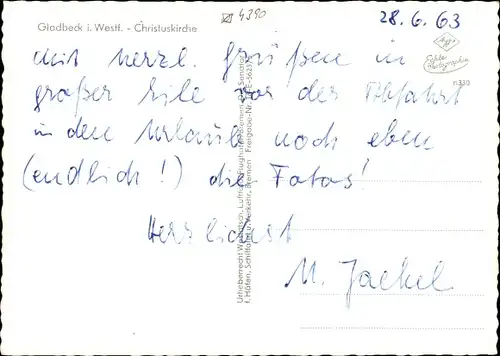 Gladbeck i. Westf. - Christuskirche
4390
28.6.63
Agfa
Echte Photographie
n330
mit herzl. Grüßen in
großer Eile vor der Abfahrt
in den Urlaub noch eben
(endlich!) die Fotos!
Herzlichst
M. Jackel
Urheberrecht
f. Häfen, Schiffahrt u. Verkehr, Bremen